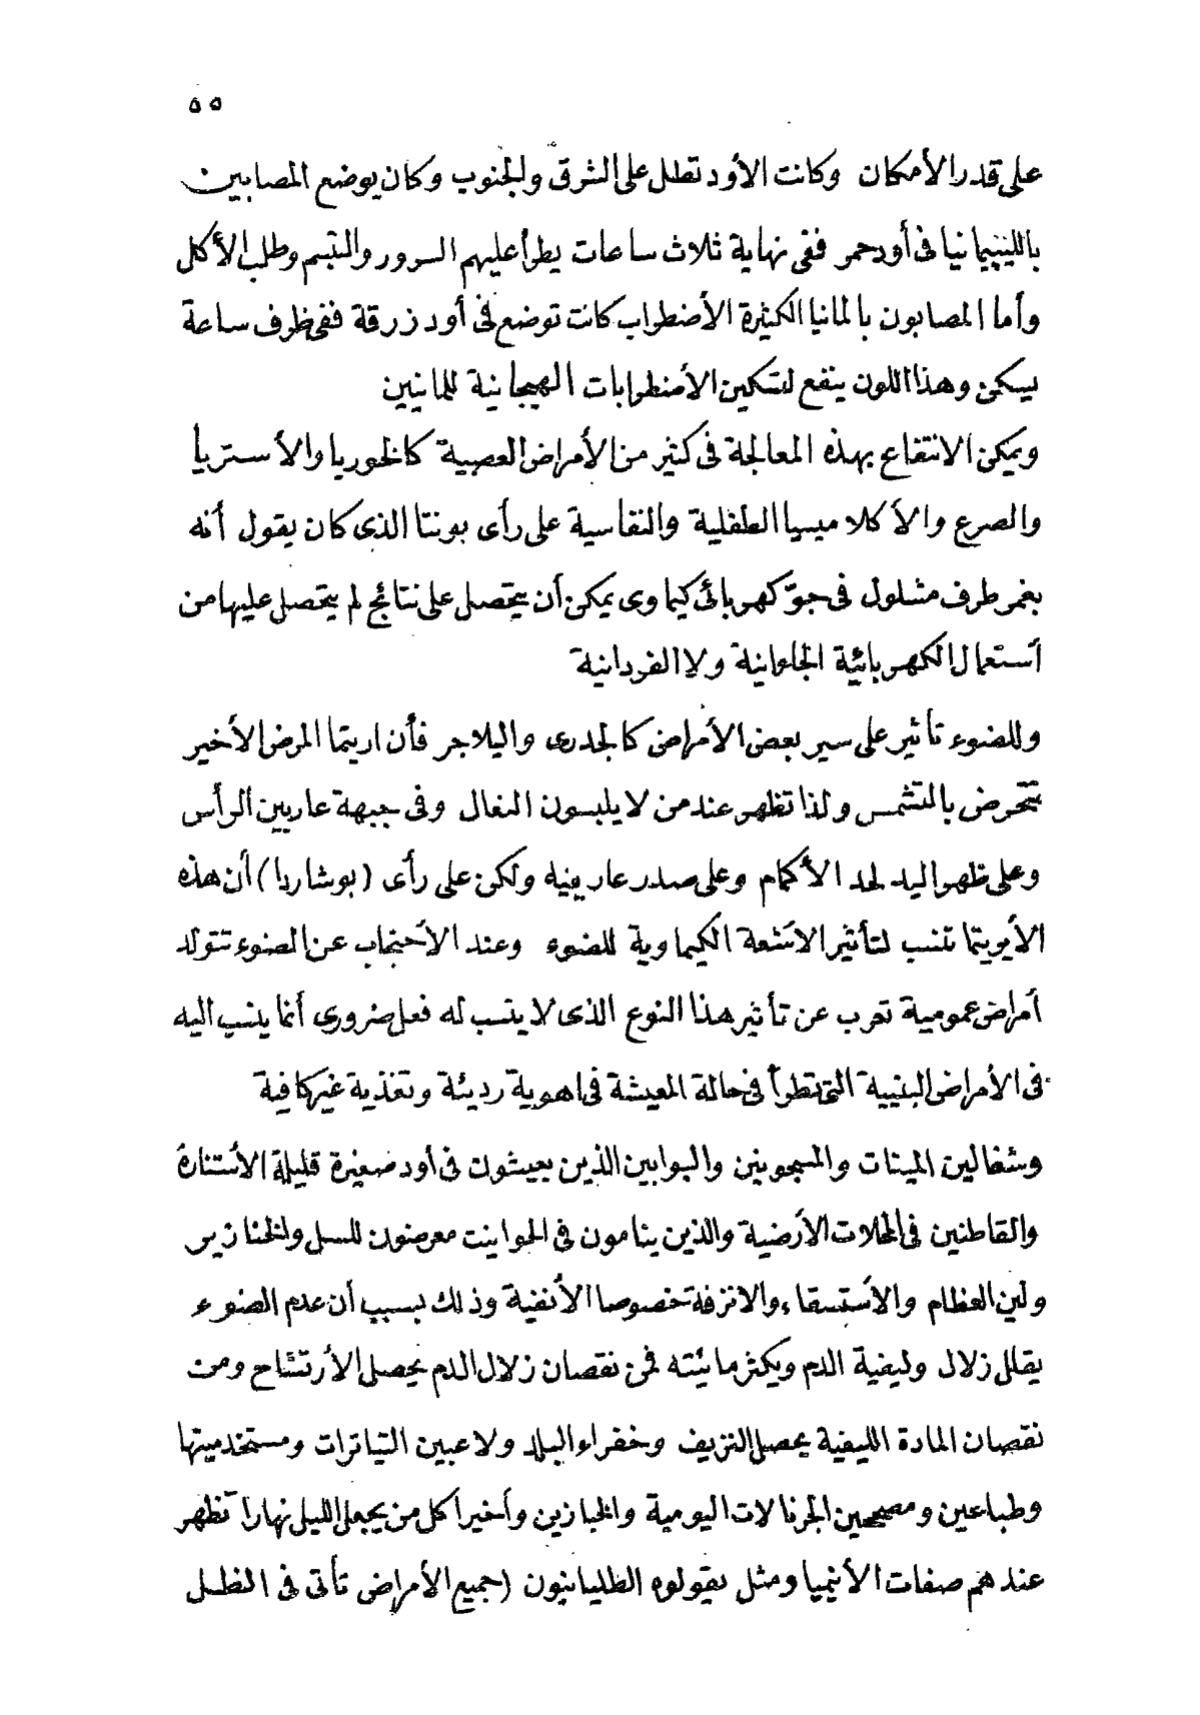 ٥٥
على قدر الأمكان وكانت الأود تطل على الشرق والجنوب وكان يوضع المصابين
بالليبيمانيا فى أود حمر ففى نهاية ثلاث ساعات يطرأ عليهم السرور والتبسم وطلب الأكل
وأما المصابون بالمانيا الكثيرة الأضطراب كانت توضع فى أود زرقة ففى ظرف ساعة
يسكن وهذا اللون ينفع لتسكين الأضطرابات الهيجانية للمانيين
ويمكن الانتفاع بهذه المعالجة فى كثير من الأمراض العصبية كالخوريا والأستريأ
والصرع والأكلامبسيا الطفلية والنفاسية على رأى بونتا الذى كان يقول أنه
بغمر طرف مشلول فى جوّ كهربائى كيماوى يمكن أن يتحصل على نتائج لم يتحصل عليها من
أستعمال الكهربائية الجلوانية ولا الفردانية
وللضوء تأثير على سير بعض الأمراض كالجدرى والپلاجر فأن اريتما المرض الأخير
تتحرض بالتشمس ولذا تظهر عند من لا يلبسون النعال وفى جبهة عاريين الرأس
وعلى ظهر اليد لحد الأكمام وعلى صدر عاريينه ولكن على رأى (بوشاردا) أن هذه
الأيريتما تنسب لتأثير الأشعة الكيماوية للضوء وعند الأحتجاب عن الضوء تتولد
أمراض عمومية تعرب عن تأثير هذا النوع الذى لا ينسب له فعل ضرورى أنما ينسب اليه
فى الأمراض البنيية التى تطرأ فى حالة المعيشة فى اهوية رديئة وتغذية غير كافية
وشغالين المينات والمسجونين والبوابين الذين يعيشون فى أود صغيرة قليلة الأستنارة
والقاطنين فى المحلات الأرضية والذين ينامون فى الحوانيت معرضون للسل والخنازير
ولين العظام والأستسقاء والانزفة خصوصا الأنفية وذلك بسبب أن عدم الضوء
يقلل زلال وليفية الدم ويكثر مائيته فمن نقصان زلال الدم يحصل الأرتشاح ومن
نقصان المادة الليفية يحصل النزيف وخفراء البلد ولاعبين التياترات ومستخدمينها
وطباعين ومصححين الجرنالات اليومية والخبازين وأخيرا كل من يجعل الليل نهارا تظهر
عندهم صفات الأنيميا ومثل يقولوه الطليانيون (جميع الأمراض تأتى فى الظل